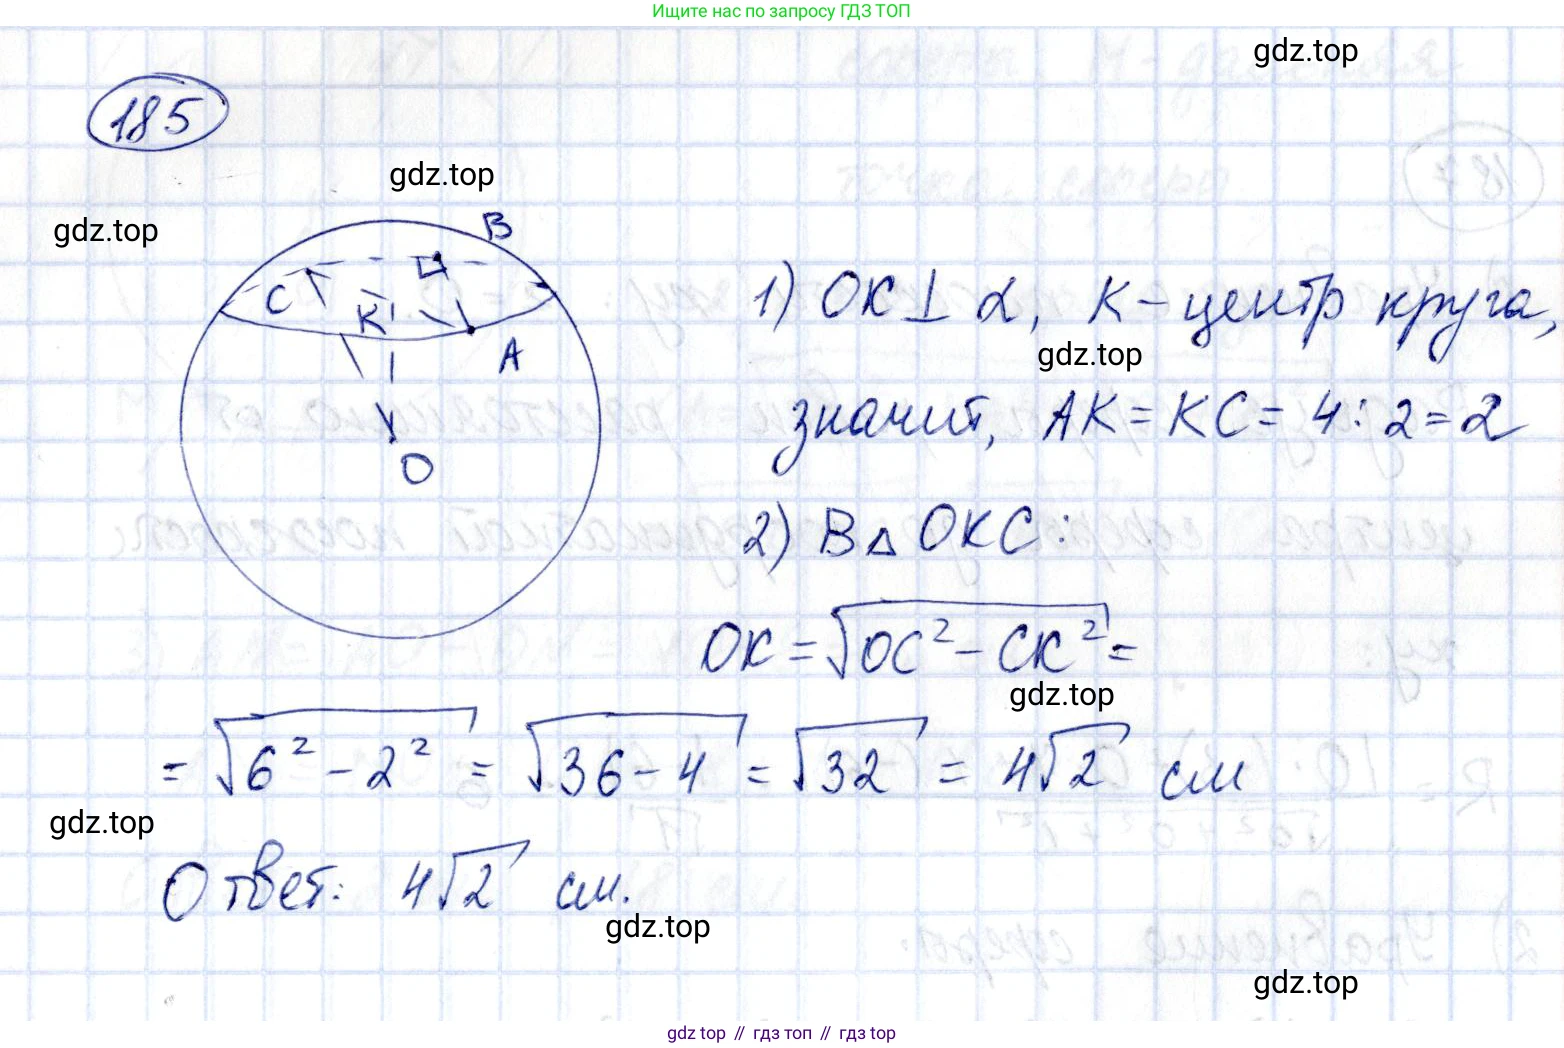 Ищите нас по запросу ГДЗ ТОП
gdz.top
185
gdz.top
gdz.top
B
C
K
A
O
1) OK⊥ α, K - центр круга,
gdz.top
значит, AK = KC = 4 : 2 = 2
2) В △ OKC:
OK = √(OC² - CK²) =
gdz.top
= √(6² - 2²) = √(36 - 4) = √32 = 4√2 см
gdz.top
Ответ: 4√2 см.
gdz.top
gdz.top
gdz top // гдз топ // гдз top